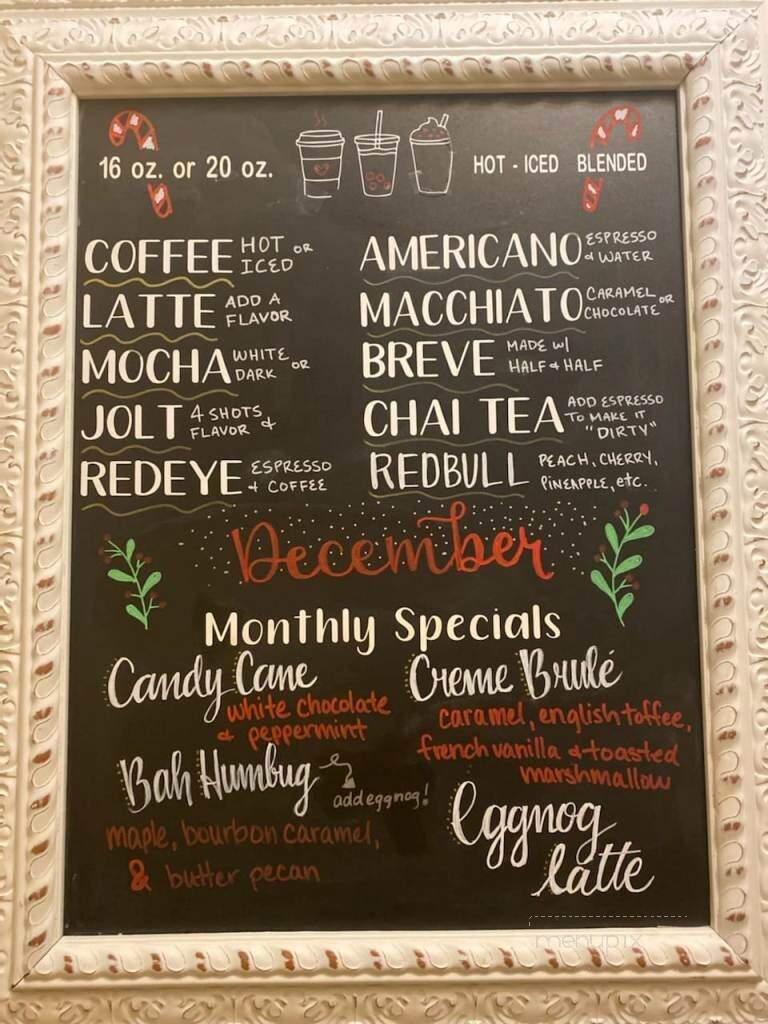 16 oz. or 20 oz.
HOT - ICED BLENDED
COFFEE HOT or ICED
LATTE ADD A FLAVOR
MOCHA WHITE or DARK
JOLT 4 SHOTS & FLAVOR
REDEYE ESPRESSO + COFFEE
AMERICANO ESPRESSO & WATER
MACCHIATO CARAMEL or CHOCOLATE
BREVE MADE W/ HALF & HALF
CHAI TEA ADD ESPRESSO TO MAKE IT "DIRTY"
REDBULL PEACH, CHERRY, PINEAPPLE, etc.
December
Monthly Specials
Candy Cane
white chocolate
& peppermint
Bah Humbug
add eggnog!
maple, bourbon caramel,
& butter pecan
Creme Brulé
caramel, english toffee,
french vanilla & toasted
marshmallow
Eggnog
latte
menupix